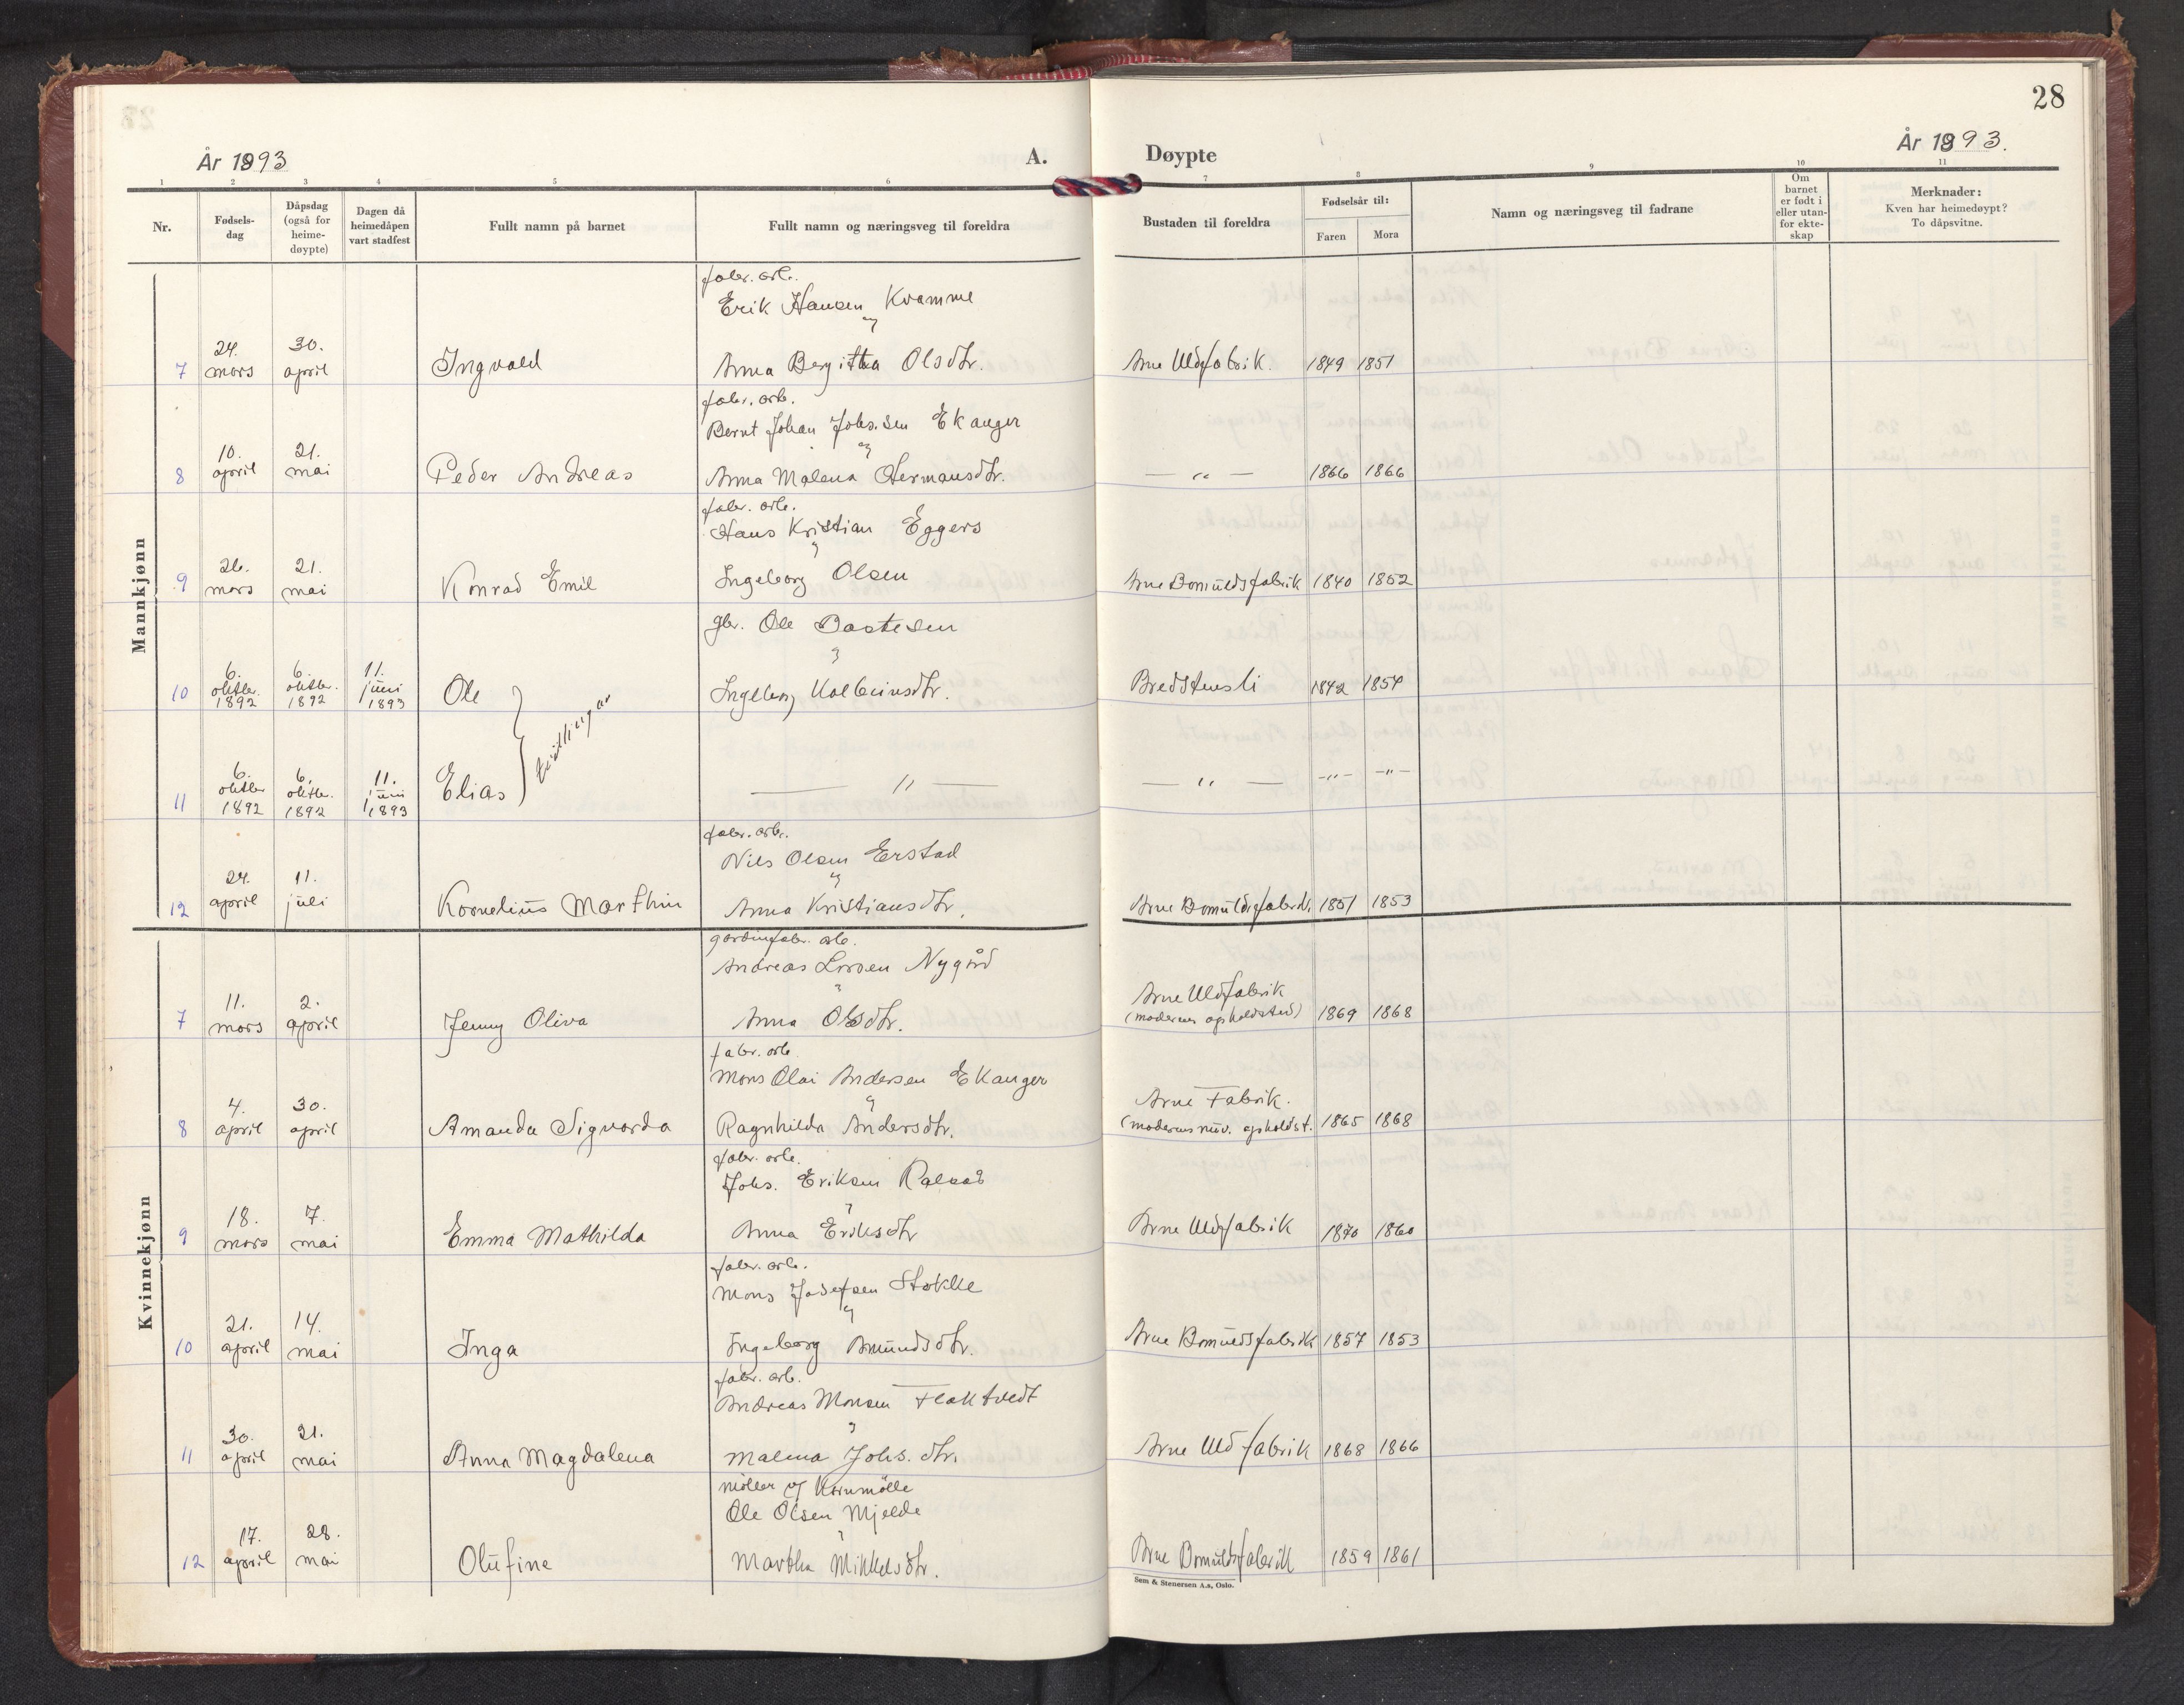 28
År 1893
A.
Døypte
År 1893.
1 2 3 4 5 6 7 8 9 10 11
Nr.
Fødsels-
dag
Dåpsdag
(også for
heime-
døypte)
Dagen då
heimedåpen
vart stadfest
Fullt namn på barnet
Fullt namn og næringsveg til foreldra
Bustaden til foreldra
Fødselsår til:
Faren Mora
Namn og næringsveg til fadrane
Om
barnet
er født i
eller utan-
for ekte-
skap
Merknader:
Kven har heimedøypt?
To dåpsvitne.
Mannkjønn
fabr. arb.
Erik Hansen Kvamme
og
7 24. mars 30. april Ingvald Anna Bergitha Olsdtr. Arne Uldfabrik. 1849 1851
fabr. arb.
Bernt Johan Johs.sen Ekanger
og
8 10. april 21. mai Peder Andreas Anna Malena Hermansdtr. — „ — 1866 1866
fabr. arb.
Hans Kristian Eggers
og
9 26. mars 21. mai Konrad Emil Ingeborg Olsen Arne Bomuldsfabrik 1840 1852
gbr. Ole Bastesen
og
10 6. oktbr. 1892 6. oktbr. 1892 11. juni 1893 Ole Ingeborg Kolbeinsdtr. Bredstensli 1842 1854
tvillingar
11 6. oktbr 1892 6. oktbr. 1892 11. juni 1893 Elias — „ — — „ — -„- -„-
fabr. arb.
Nils Olsen Erstad
og
12 24. april 11. juli Kornelius Marthin Anna Kristiansdtr. Arne Bomuldsfabrik. 1851 1853
Kvinnekjønn
gardinfabr. arb.
Andreas Larsen Nygård
og
7 11. mars 2. april Jenny Oliva Anna Olsdtr. Arne Uldfabrik (moderens opholdsted) 1869 1868
fabr. arb.
Mons Olai Andersen Ekanger
og
8 4. april 30. april Amanda Sigvarda Ragnhilda Andersdtr. Arne Fabrik. (moderens nuv. opholdst. 1865 1868
fabr. arb.
Johs. Eriksen
og
9 18. mars 7. mai Emma Mathilda Anna Eriksdtr Arne Uldfabrik 1870 1860
fabr. arb.
Mons Josefsen Støkke
og
10 21. april 14. mai Inga Ingeborg Amundsdtr. Arne Bomuldsfabrik 1857 1853
fabr. arb.
Andreas Monsen Flaktvedt
og
11 30. april 21. mai Anna Magdalena Malena Johs.dtr. Arne Uldfabrik 1868 1866
møller og Kornmølle
Ole Olsen Mjelde
og
12 17. april 28. mai Olufine Martha Mikkelsdtr. Arne Bomuldsfabrik 1859 1861
Sem & Stenersen A.s, Oslo.